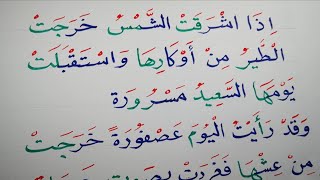 اِذَا اشْرَقَتْ الشَّمْسُ خَرَجَتْ
الْطَّيرُ مِنْ أَوْكَارِهَا وَاسْتَقْبَلَتْ
يَوْمَهَا السَّعِيدُ مَسْرُورَة
وَقَدْ رَأَيْتُ الْيَوْمَ عَصْفُورَةً خَرَجَت
مِنْ عِشِّهَا فَغَرَّدَتْ